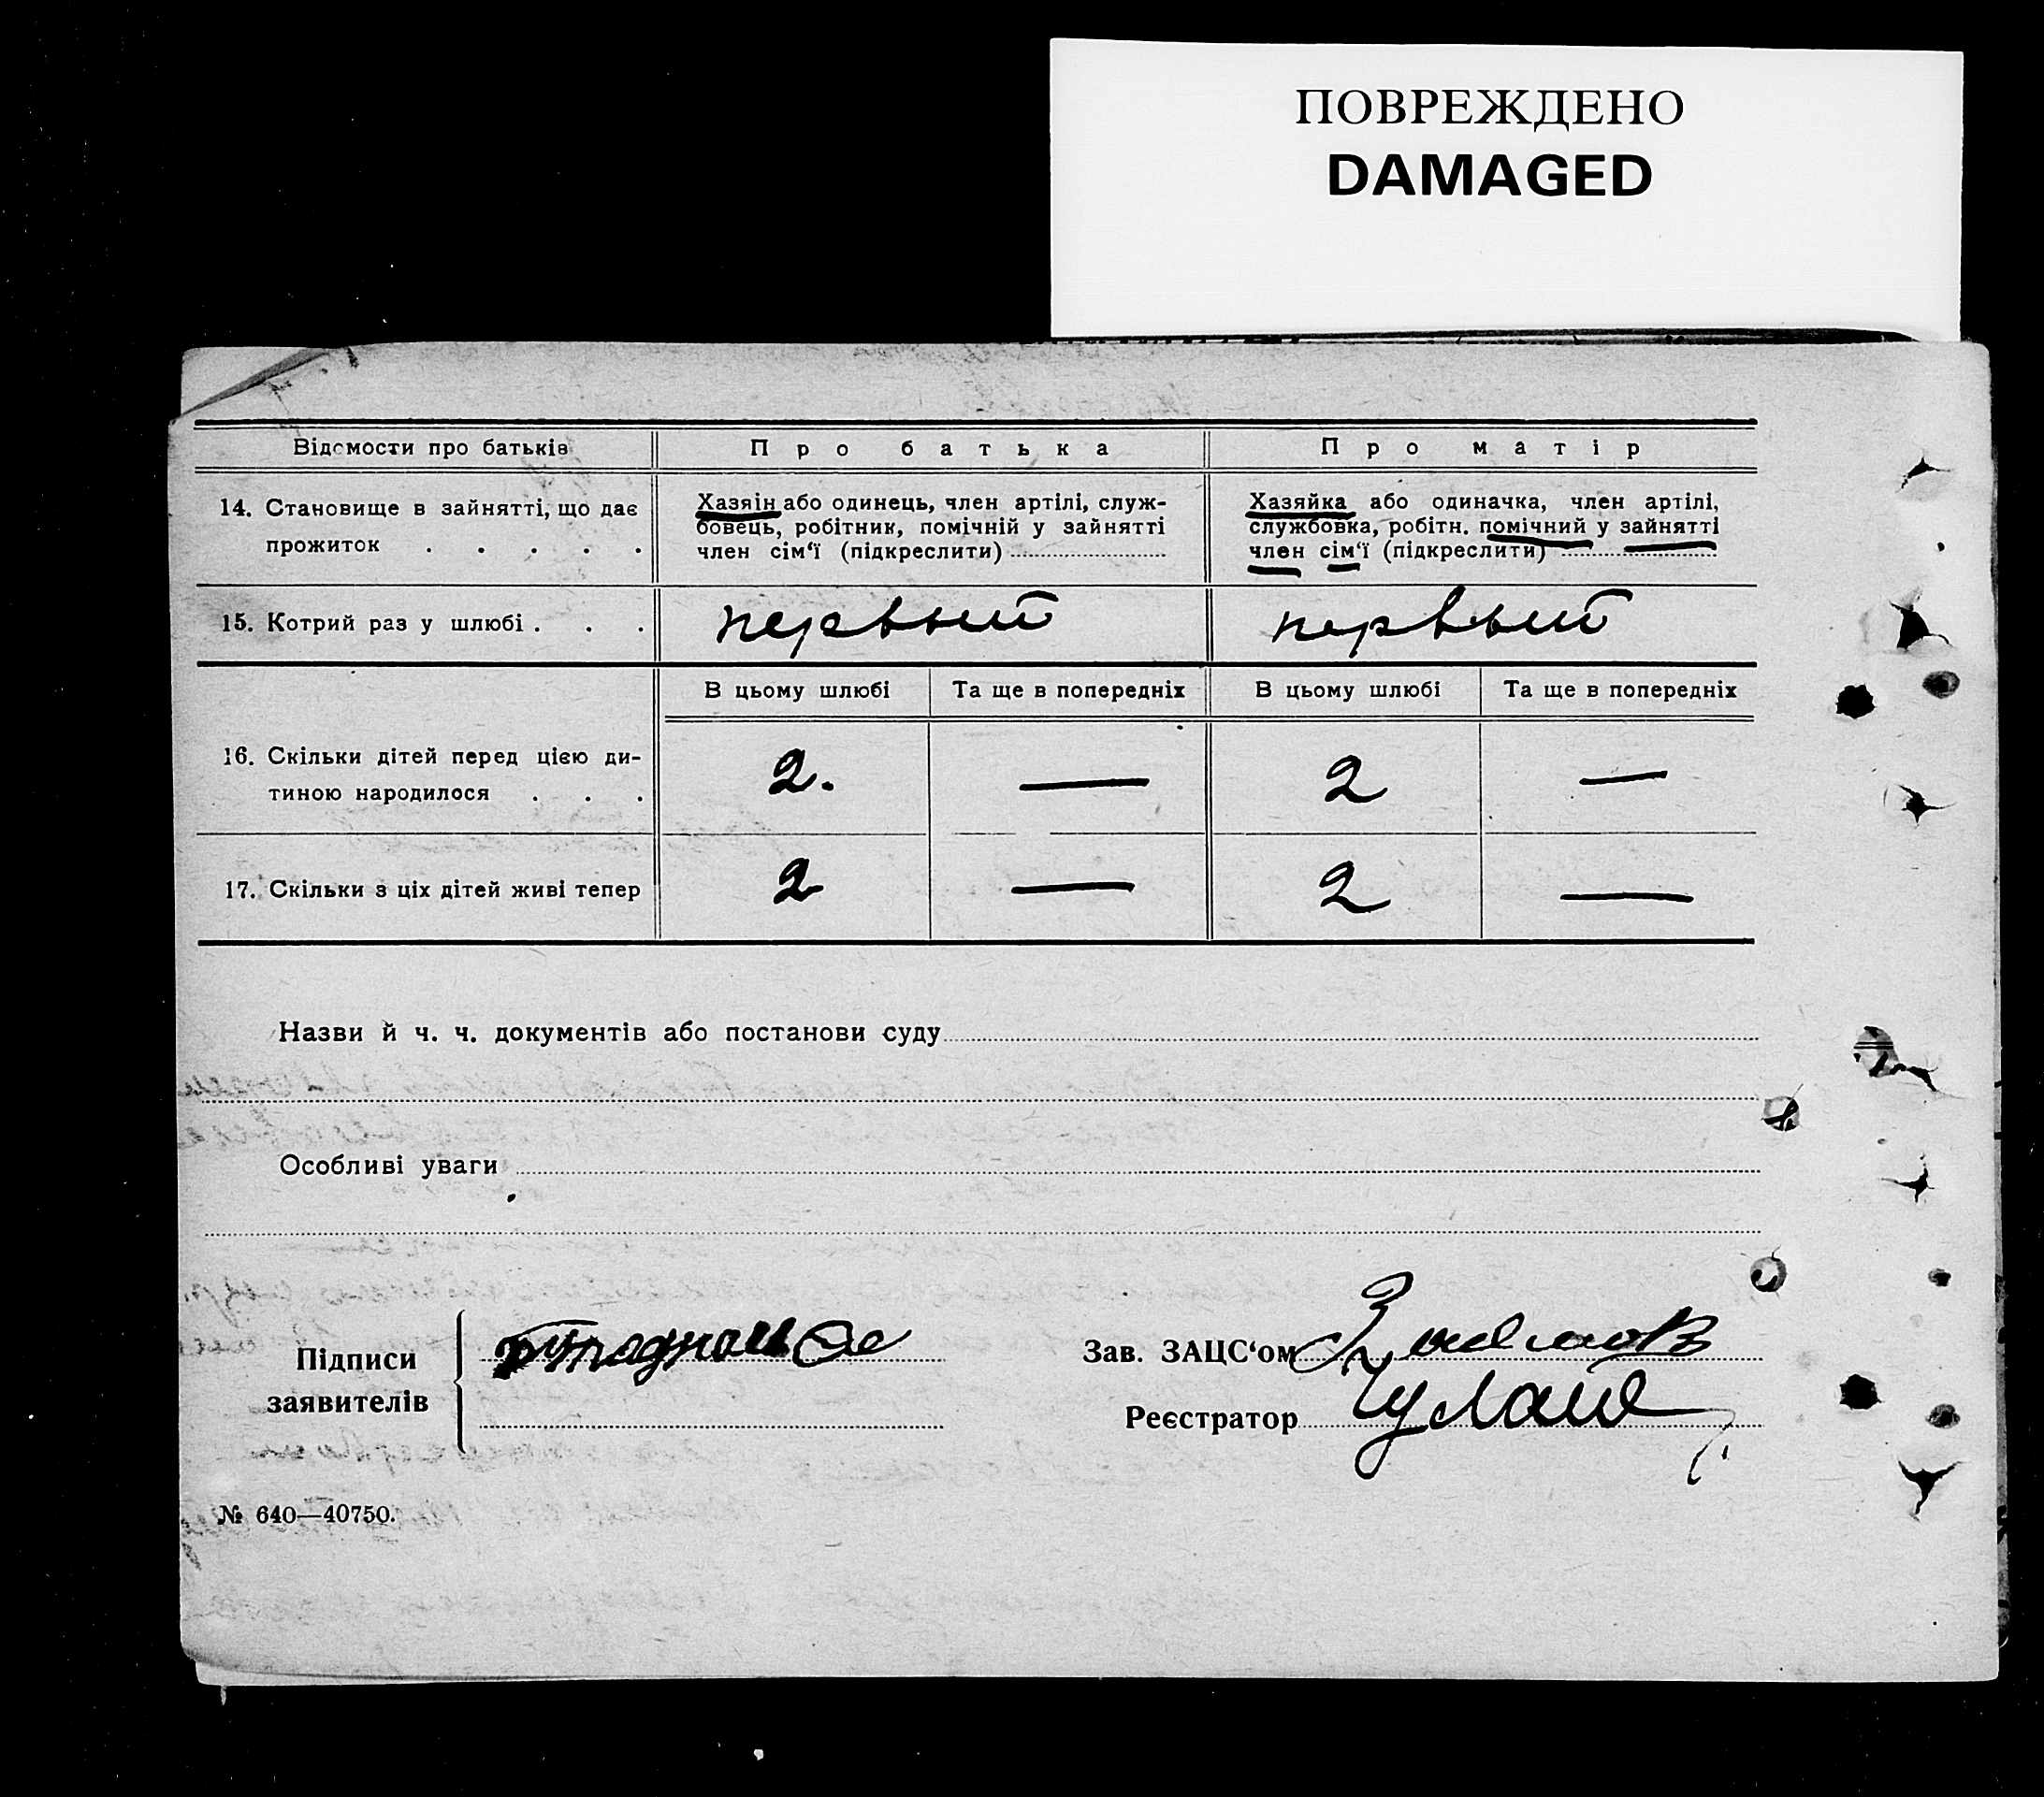 ПОВРЕЖДЕНО
DAMAGED
Відомости про батьків
Про батька
Про матір
14. Становище в зайнятті, що дає
прожиток . . . . .
Хазяїн або одинець, член артілі, служ-
бовець, робітник, помічній у зайнятті
член сім‘ї (підкреслити)
Хазяйка або одиначка, член артілі,
службовка, робітн. помічний у зайнятті
член сім‘ї (підкреслити)
15. Котрий раз у шлюбі . . .
первый
первый
В цьому шлюбі
Та ще в попередніх
В цьому шлюбі
Та ще в попередніх
16. Скільки дітей перед цією ди-
тиною народилося . . .
2.
—
2
—
17. Скільки з ціх дітей живі тепер
2
—
2
—
Назви й ч. ч. документів або постанови суду
Особливі уваги
Підписи
заявителів
Зав. ЗАЦС‘ом
Реєстратор
№ 640—40750.